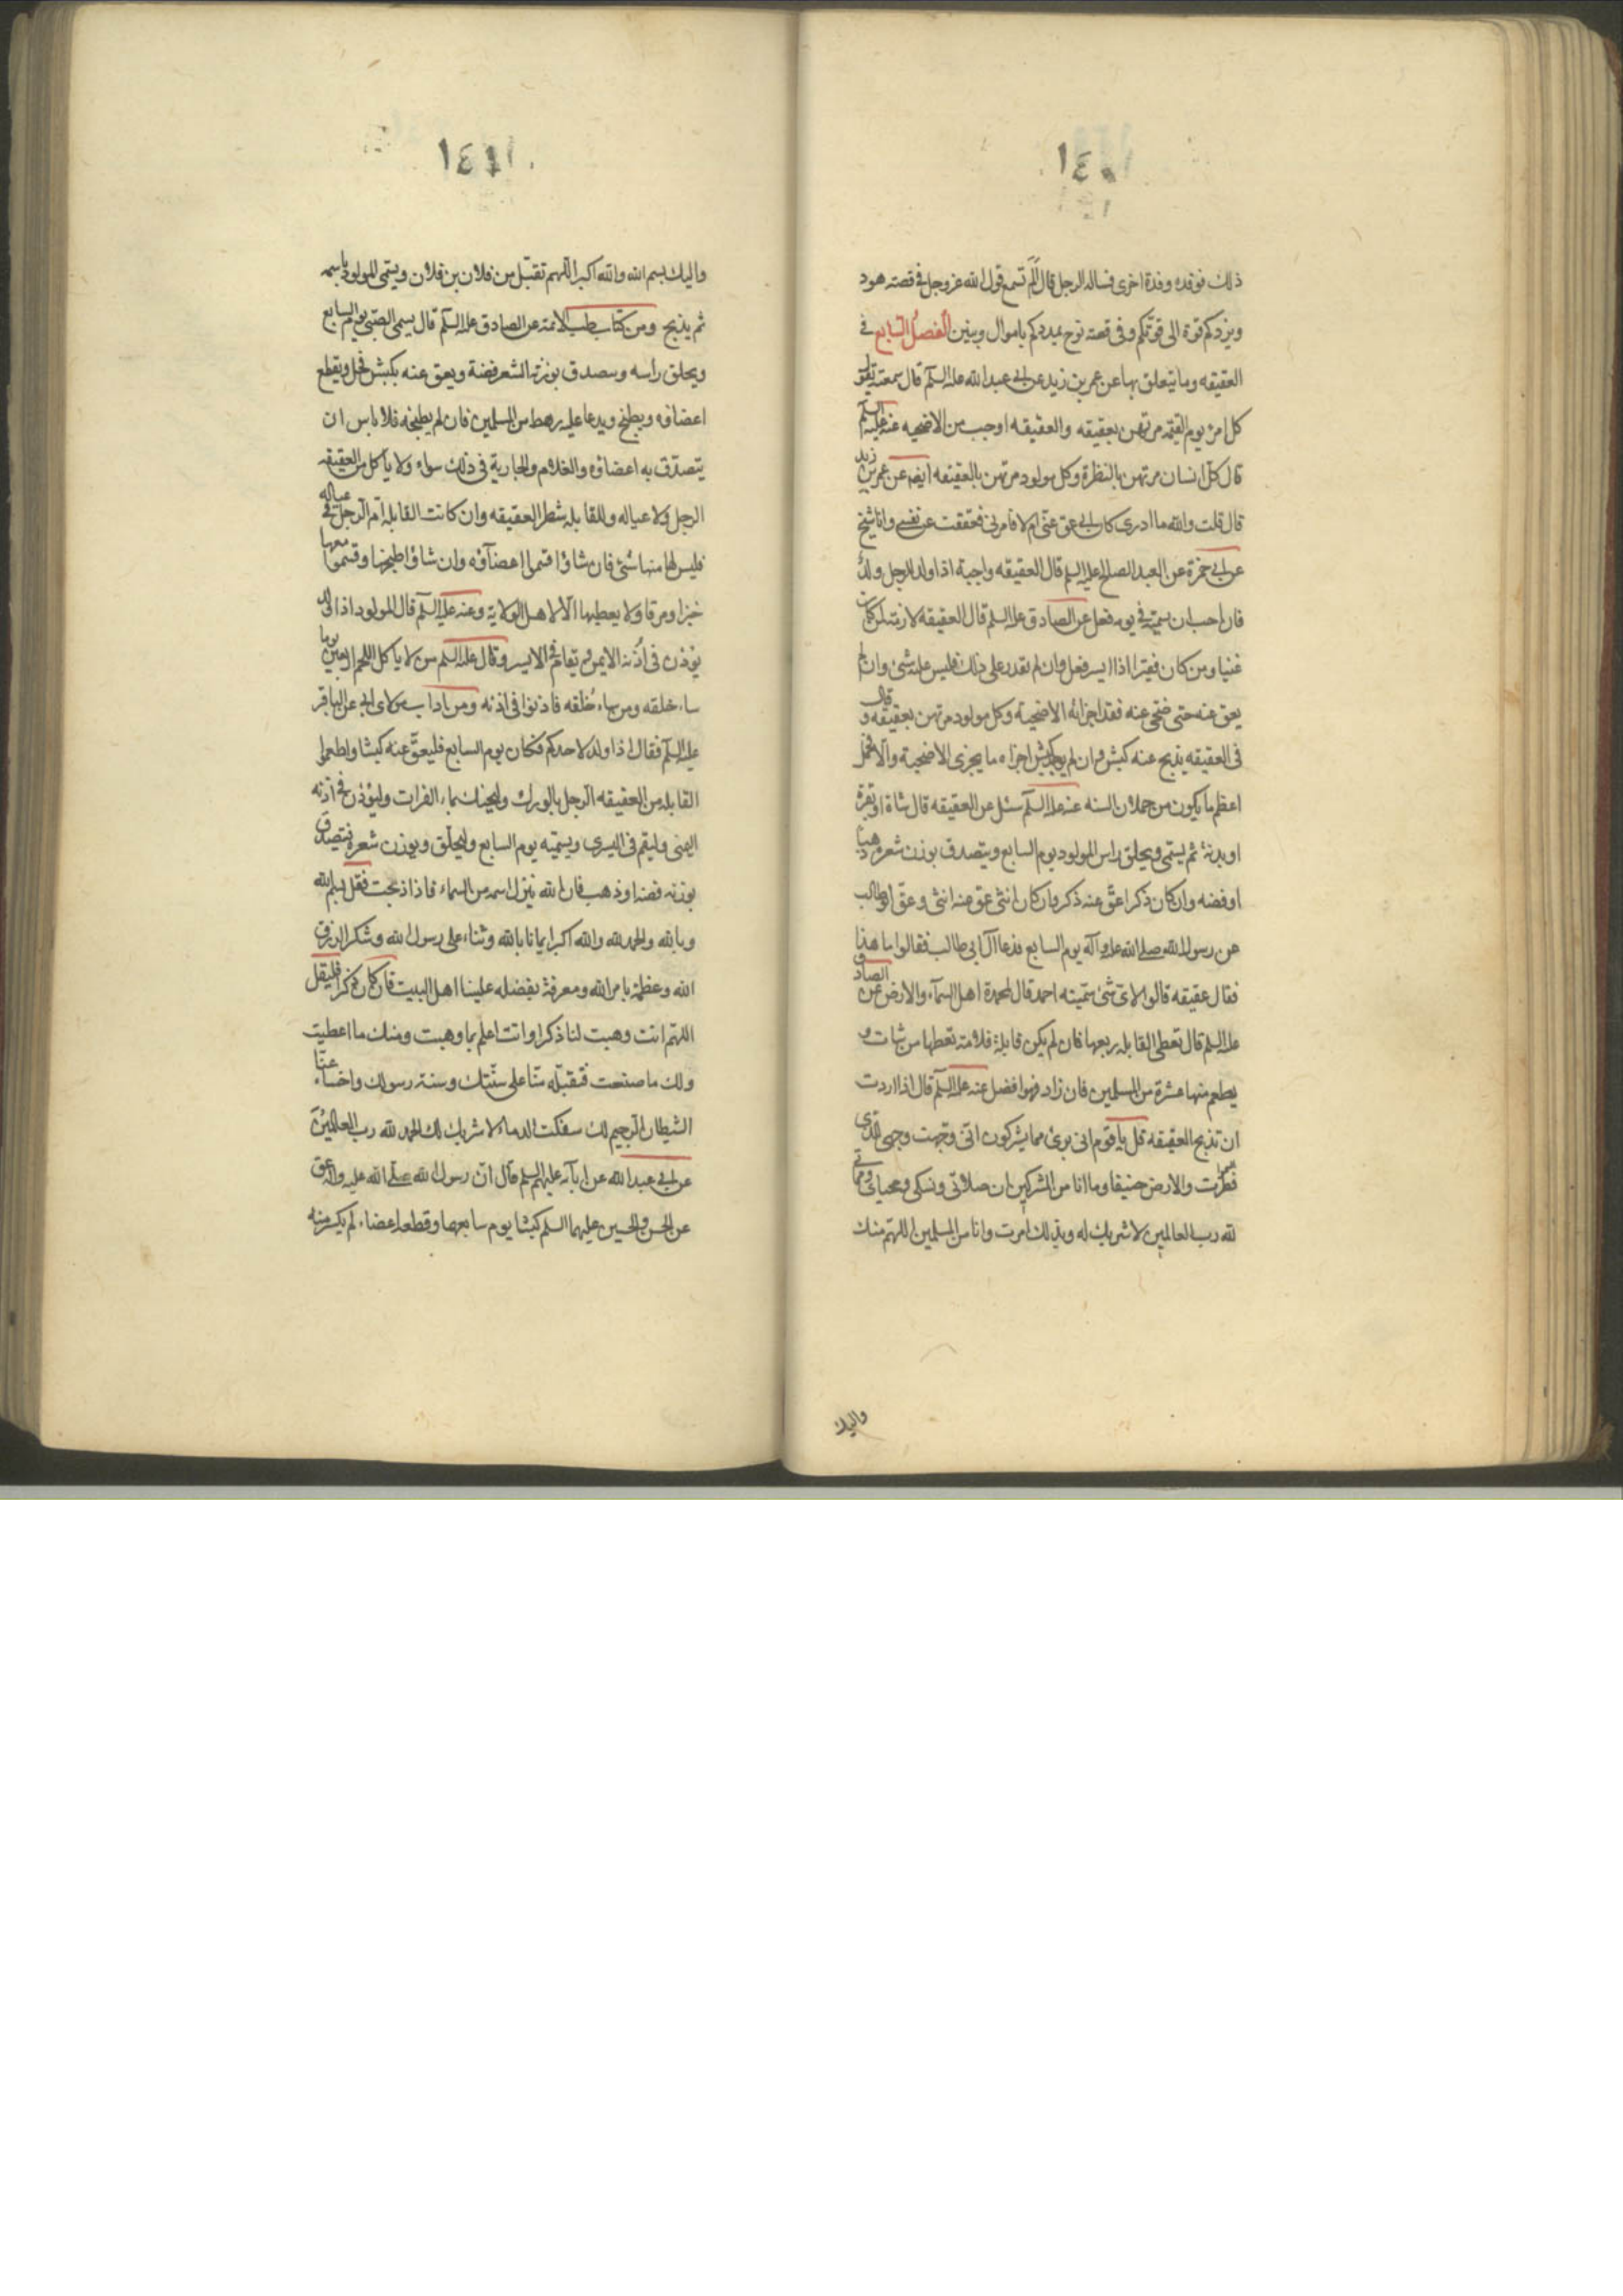 ١٤٠
ذلك فوفده وفدة اخرى فساله الرجل قال ألم تسمع قول الله عز وجل في قصته هود
ويزدكم قوة الى قوتكم وفى قصته نوح يمددكم باموال وبنين الفصل السابع في
العقيقه وما يتعلق بها عن عمر بن زيد عن ابي عبد الله عليه السلم قال سمعته يقول
كل امرء يوم القيمه مرتهن بعقيقه والعقيقه اوجب من الاضحيه عنه عليه السلم
قال كل انسان مرتهن بالفطرة وكل مولود مرتهن بالعقيقه ايضه عن عمر بن زيد
قال قلت والله ما ادرى كان ابي عق عنى ام لا فامرنى فعققت عن نفسى وانا شيخ
عن ابي حمزة عن العبد الصالح عليه السلم قال العقيقه واجبة اذا ولد للرجل ولد
فان احب ان يسميه في يومه فعل عن الصادق عليه السلم قال العقيقه لازمة لمن كان
غنيا ومن كان فقيرا اذا ايسر فعل وان لم يقدر على ذلك فليس عليه شئ وان لم
يعق عنه حتى ضحى عنه فقد اجزاته الاضحية وكل مولود مرتهن بعقيقه وقال
فى العقيقه يذبح عنه كبش وان لم يوجد كبش اجزاه ما يجزى الاضحية والا فحمل
اعظم ما يكون من حملان السنه عنه عليه السلم سئل عن العقيقه قال شاة او بقرة
او بدنة ثم يسمى ويحلق راس المولود يوم السابع ويتصدق بوزن شعره ذهبا
او فضه وان كان ذكرا عق عنه ذكر وان كان انثى عق عنه انثى وعق ابو طالب
عن رسول الله صلى الله عليه وآله يوم السابع فدعا آل ابي طالب فقالوا ما هذا
فقال عقيقه قالوا لاى شئ سميته احمد قال لمحمدة اهل السماء والارض عن الصادق
عليه السلم قال تعطى القابله ربعها فان لم يكن قابلة فلامه تعطها من شات و
يطعم منها عشرة من المسلمين فان زاد فهو افضل عنه عليه السلم قال اذا اردت
ان تذبح العقيقه قل يا قوم انى برئ مما يشركون انى وجهت وجهى للذى
فطر السموات والارض حنيفا وما انا من المشركين ان صلاتى ونسكى ومحياى ومماتى
لله رب العالمين لا شريك له وبذلك امرت وانا من المسلمين اللهم منك
واليك
١٤١
واليك بسم الله والله اكبر اللهم تقبل من فلان بن فلان ويسمى المولود باسمه
ثم يذبح ومن كتاب طب الائمه عن الصادق عليه السلم قال يسمى الصبى يوم السابع
ويحلق راسه ويتصدق بوزنة الشعر فضة ويعق عنه بكبش فحل ويقطع
اعضاؤه ويطبخ ويدعا عليه رهط من المسلمين فان لم يطبخه فلا باس ان
يتصدق به اعضاؤه والغلام والجارية فى ذلك سواء ولا ياكل من العقيقه
الرجل ولا عياله وللقابله شطر العقيقه وان كانت القابله ام الرجل او فى عياله
فليس لها منها شئ فان شاؤا قسموا اعضآؤه وان شاؤا طبخها وقسموا معها
خبزا ومرقا ولا يعطيها الا لاهل الولاية وعنه عليه السلم قال المولود اذا ولد
يؤذن فى اذنه الايمن ويقام في الايسر وقال عليه السلم من لا ياكل اللحم اربعين يوما
ساء خلقه ومن ساء خلقه فاذنوا فى اذنه ومن اداب مولاى ابي عن الباقر
عليه السلم فقال اذا ولد لاحدكم فكان يوم السابع فليعق عنه كبشا واطعموا
القابله من العقيقه الرجل بالورك وليحنك بماء الفرات وليؤذن في اذنه
اليمنى وليقم فى اليسرى ويسميه يوم السابع وليحلق ويوزن شعره فيتصدق
بوزنه فضه او ذهب فان الله ينزل اسمه من السماء فاذا ذبحت فقل بسم الله
وبالله والحمد لله والله اكبر ايمانا بالله وثناء على رسول الله وشكرا لرزق
الله وعظمة بامر الله ومعرفة بفضله علينا اهل البيت فان كان ذكرا فليقل
اللهم انت وهبت لنا ذكرا وانت اعلم بما وهبت ومنك ما اعطيت
ولك ما صنعت فتقبله منا على سنتك وسنة رسولك واخساء عنا
الشيطان الرجيم لك سفكت الدماء لا شريك لك الحمد لله رب العالمين
عن ابي عبد الله عن ابآئه عليهم السلم قال ان رسول الله صلى الله عليه وآله عق
عن الحسن والحسين عليهما السلم كبشا يوم سابعها وقطعه اعضاء لم يكسر منه